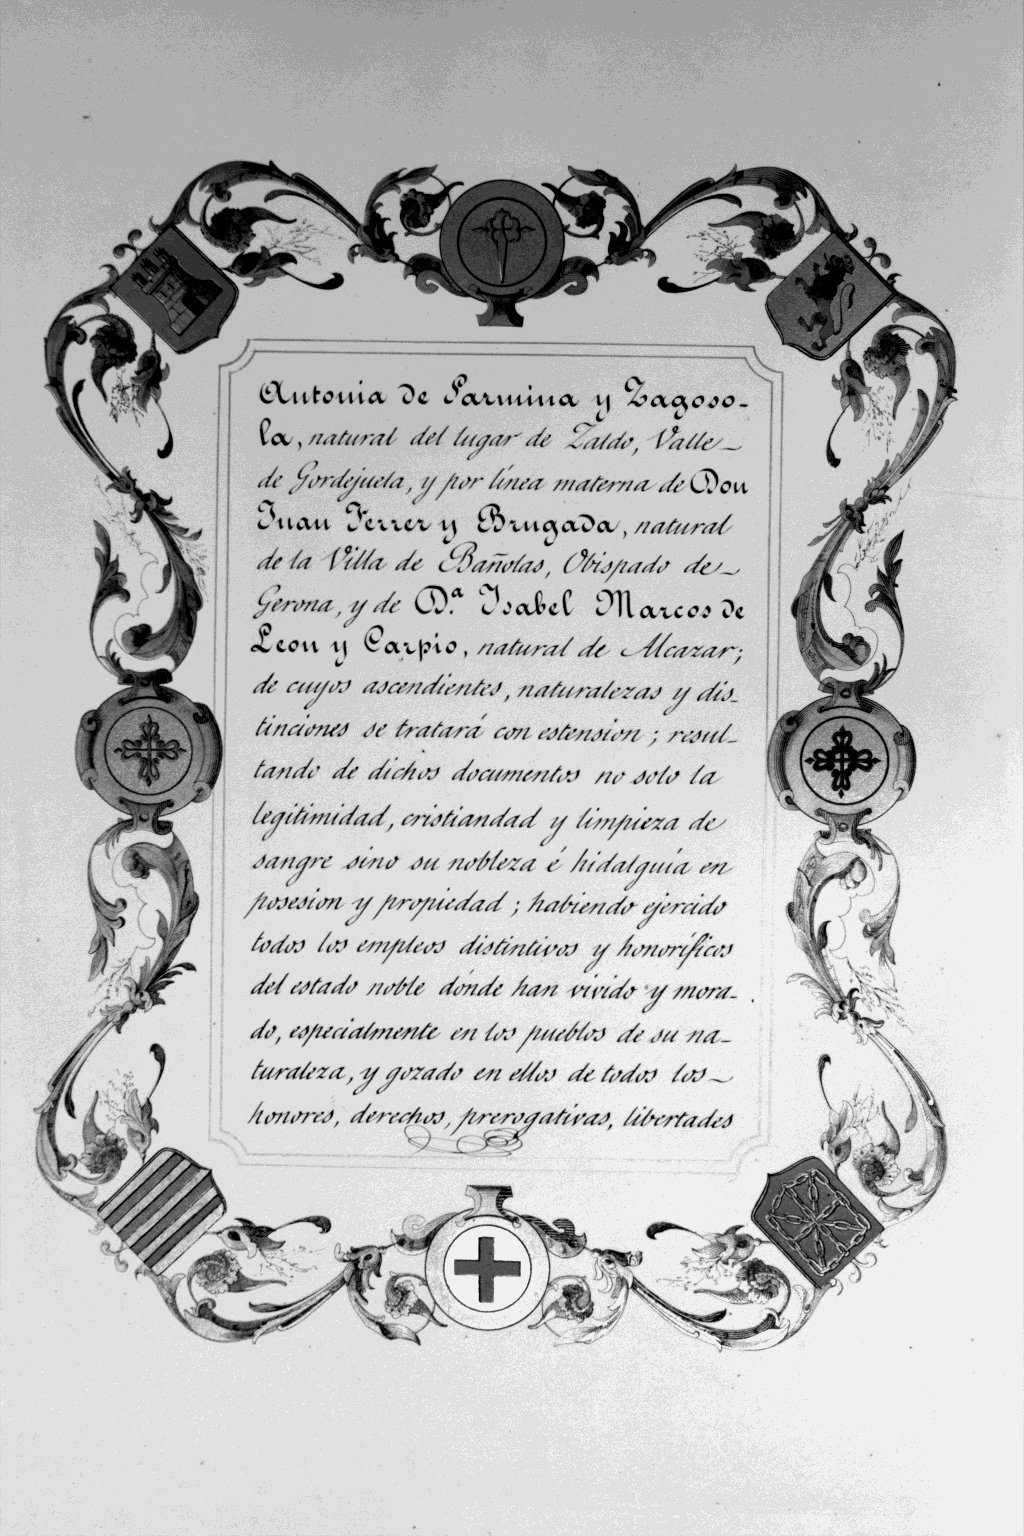 Antonia de Parmina y Zagoso-
la, natural del lugar de Zaldo, Valle
de Gordejuela, y por línea materna de Don
Juan Ferrer y Brugada, natural
de la Villa de Bañolas, Obispado de
Gerona, y de D.ª Isabel Marcos de
Leon y Carpio, natural de Alcazar;
de cuyos ascendientes, naturalezas y dis-
tinciones se tratará con estension; resul-
tando de dichos documentos no solo la
legitimidad, cristiandad y limpieza de
sangre sino su nobleza é hidalguía en
posesion y propiedad; habiendo ejercido
todos los empleos distintivos y honoríficos
del estado noble dónde han vivido y mora-
do, especialmente en los pueblos de su na-
turaleza, y gozado en ellos de todos los
honores, derechos, prerogativas, libertades